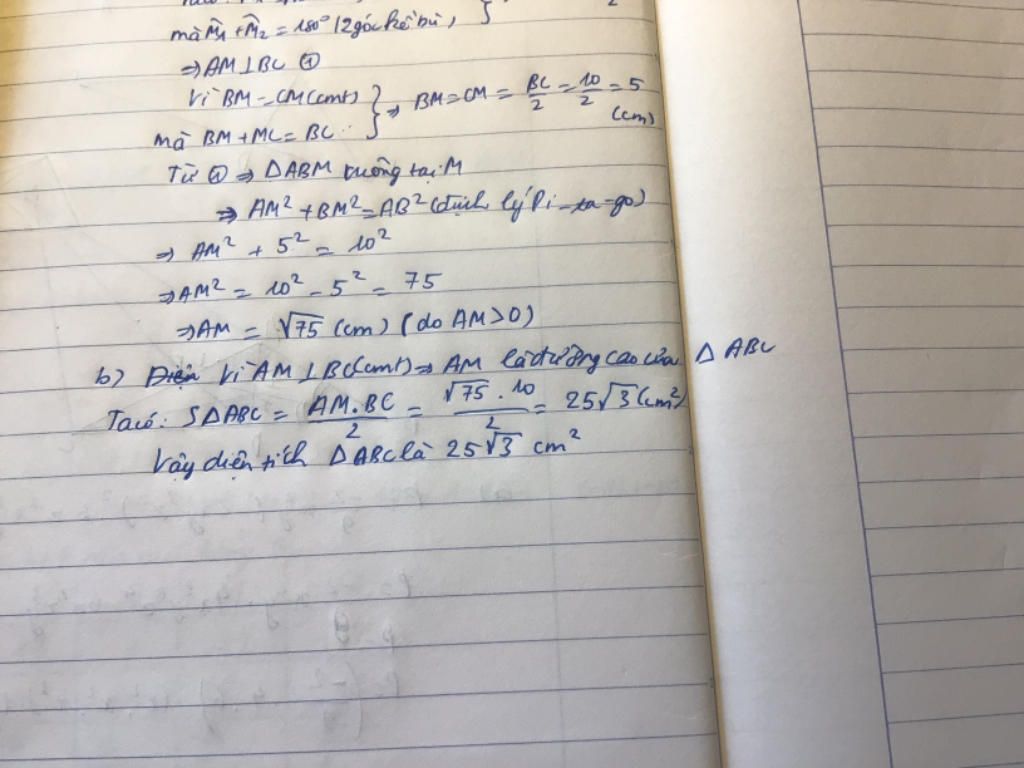 mà M̂₁ + M̂₂ = 180° (2 góc kề bù)
⇒ AM ⊥ BC ①
Vì BM = CM (cmt)
mà BM + MC = BC } ⇒ BM = CM = BC/2 = 10/2 = 5 (cm)
Từ ① ⇒ ΔABM vuông tại M
⇒ AM² + BM² = AB² (định lý Pi-ta-go)
⇒ AM² + 5² = 10²
⇒ AM² = 10² - 5² = 75
⇒ AM = √75 (cm) (do AM > 0)
b) Vì AM ⊥ BC (cmt) ⇒ AM là đường cao của Δ ABC
Ta có: SΔABC = AM.BC/2 = √75 . 10/2 = 25√3 (cm²)
Vậy diện tích ΔABC là 25√3 cm²